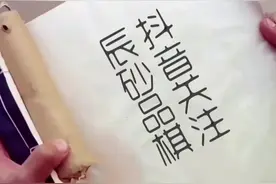 抖音关注
辰砂品棋